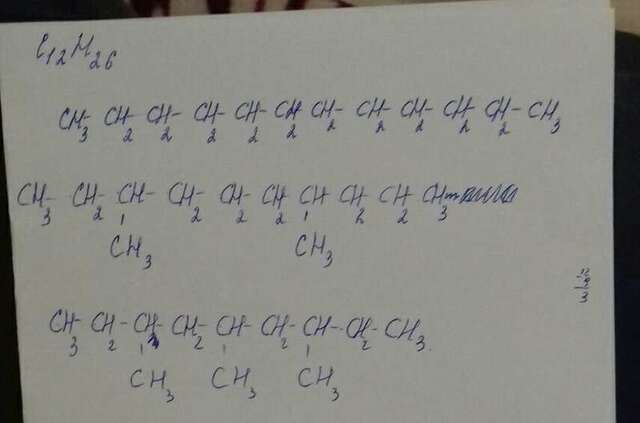 C₁₂H₂₆
CH₃-CH₂-CH₂-CH₂-CH₂-CH₂-CH₂-CH₂-CH₂-CH₂-CH₂-CH₃
CH₃-CH₂-CH-CH₂-CH₂-CH₂-CH-CH₂-CH₂-CH₃
CH₃ CH₃
12
9
3
CH₃-CH₂-CH-CH₂-CH-CH₂-CH-CH₂-CH₃.
CH₃ CH₃ CH₃